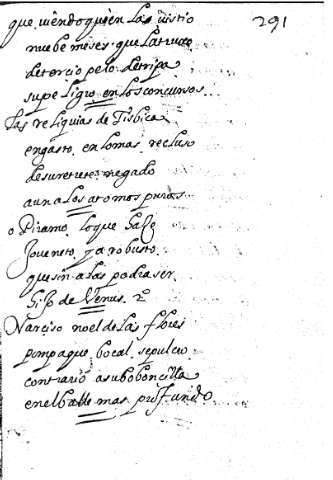 291
que viendo quien las vistio
nuebe meses que la truxo
de tercio pelo de tripa
su peligro en los concursos
las reliquias de Tisbica
engasto en lo mas recluso
de su retrete negado
aun a los atomos puros
o Piramo lo que haze
Joveneto ya robusto
que sin alas podia ser
hijo de Venus 2º
Narciso no el de las flores
pompa que bocal sepulcro
contrario a su boboncilla
en el balle mas profundo